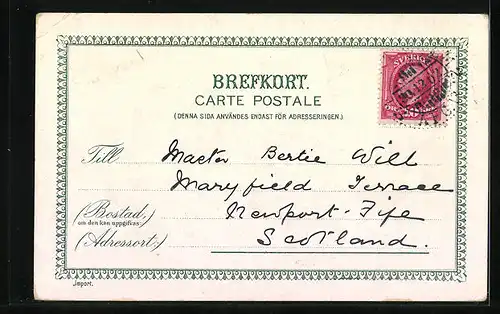 SVERIGE
BREFKORT.
CARTE POSTALE
(DENNA SIDA ANVÄNDES ENDAST FÖR ADRESSERINGEN.)
Till Master Bertie Will
Maryfield Terrace
(Bostad,) Newport-Fife
om den kan uppgifvas
(Adressort:) Scotland.
Import.